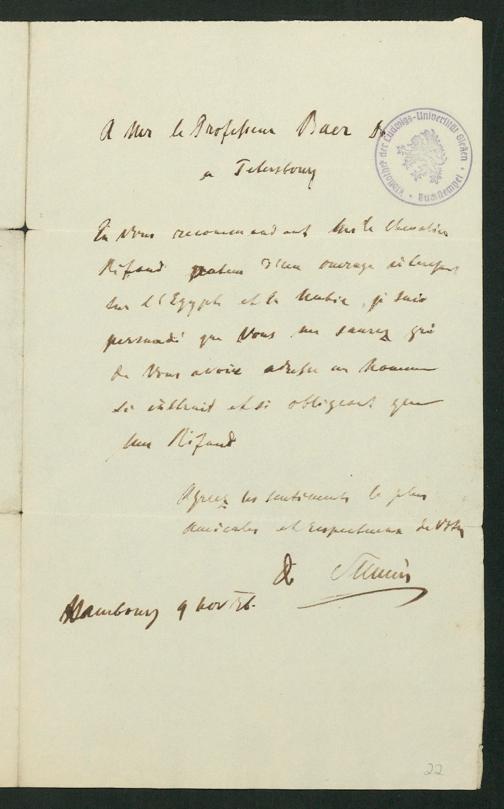 A Mr le Professeur Baer Dr
a Petersbourg
En Vous recommandant Mr le Chevalier
Rifaud auteur d'un ouvrage interessant
sur l'Egypte et la Nubie, je suis
persuadé que Vous me saurez gré
de Vous avoir adressé un homme
si instruit et si obligeant que
Mr Rifaud
Agreez les sentiments le plus
amicales et respectueux de Votre
Dr
Hambourg 9 nov 36.
Bibliothek der Ludwigs-Universität Gießen
22